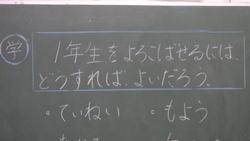 学
1年生をよろこばせるには、
どうすれば、よいだろう。
・ていねい ・もよう